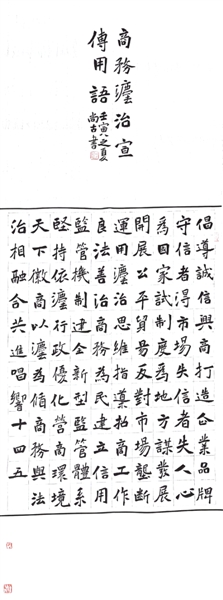 商務灋治宣
傳用語
壬寅之夏
尚古書
倡導誠信興商打造企業品牌
守信者得市場失信者失人心
為国家試制度為地方謀發展
開展公平貿易反對市場壟斷
運用灋治思維指導招商工作
良法善治商務為民建立信用
監管機制建全新型監管體系
堅持依灋行政優化營商環境
天下徽商以灋為傾商務與法
治相融合共進唱響十四五